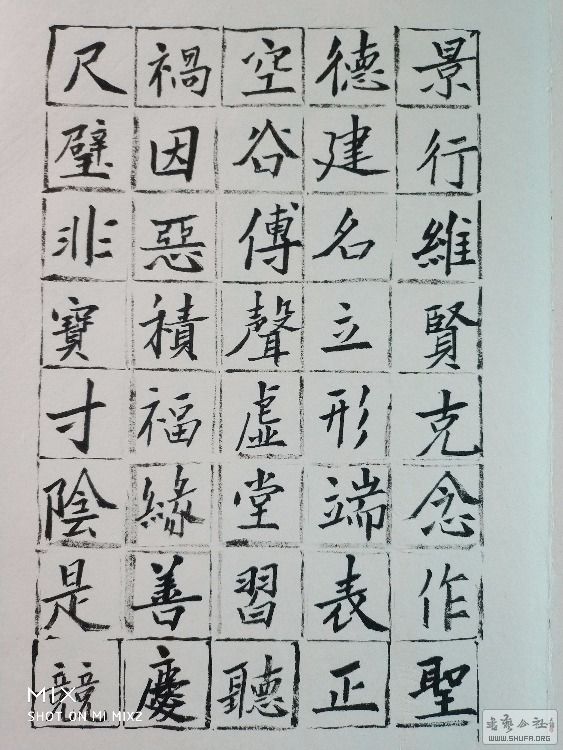 景行維賢克念作聖
德建名立形端表正
空谷傳聲虛堂習聽
禍因惡積福緣善慶
尺璧非寶寸陰是競
MIX
SHOT ON MI MIX2
書藝公社
WWW.SHUFA.ORG